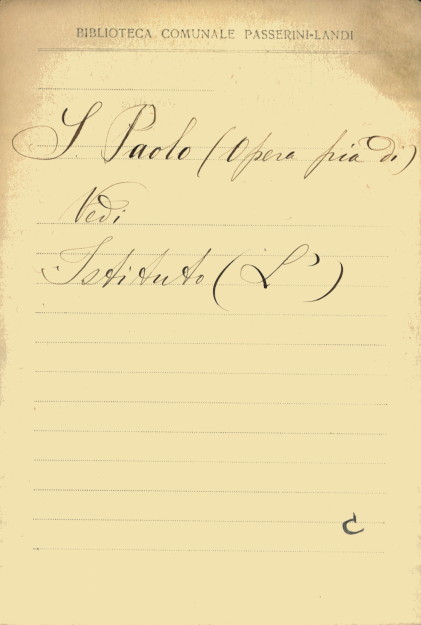 BIBLIOTECA COMUNALE PASSERINI-LANDI
S. Paolo (Opera pia di)
Vedi
Istituto (L')
C